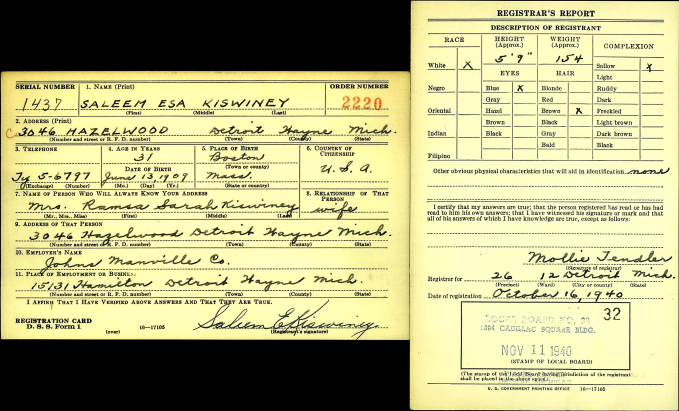 SERIAL NUMBER 1. NAME (Print) ORDER NUMBER
1437 SALEEM ESA KISWINEY 2220
(First) (Middle) (Last)
2. ADDRESS (Print)
3046 HAZELWOOD Detroit Wayne Mich.
(Number and street or R. F. D. number) (Town) (County) (State)
3. TELEPHONE 4. AGE IN YEARS 5. PLACE OF BIRTH 6. COUNTRY OF CITIZENSHIP
31 Boston
DATE OF BIRTH (Town or county) U.S.A.
Ty 5-6797 June 13 1909 Mass.
(Exchange) (Number) (Mo.) (Day) (Yr.) (State or country)
7. NAME OF PERSON WHO WILL ALWAYS KNOW YOUR ADDRESS 8. RELATIONSHIP OF THAT PERSON
Mrs. Ramsa Sarah Kiswiney wife
(Mr., Mrs., Miss) (First) (Middle) (Last)
9. ADDRESS OF THAT PERSON
3046 Hazelwood Detroit Wayne Mich.
(Number and street or R. F. D. number) (Town) (County) (State)
10. EMPLOYER'S NAME
Johns Manville Co.
11. PLACE OF EMPLOYMENT OR BUSINESS
15131 Hamilton Detroit Wayne Mich.
(Number and street or R. F. D. number) (Town) (County) (State)
I AFFIRM THAT I HAVE VERIFIED ABOVE ANSWERS AND THAT THEY ARE TRUE.
REGISTRATION CARD
D. S. S. Form 1 16—17105 Saleem E Kiswiney
(over) (Registrant's signature)
REGISTRAR'S REPORT
DESCRIPTION OF REGISTRANT
RACE HEIGHT (Approx.) WEIGHT (Approx.) COMPLEXION
5' 9" 154
White X Sallow X
EYES HAIR Light
Negro Blue X Blonde Ruddy
Gray Red Dark
Oriental Hazel Brown X Freckled
Brown Black Light brown
Indian Black Gray Dark brown
Bald Black
Filipino
Other obvious physical characteristics that will aid in identification none
I certify that my answers are true; that the person registered has read or has had
read to him his own answers; that I have witnessed his signature or mark and that
all of his answers of which I have knowledge are true, except as follows:
Mollie Tendler
(Signature of registrar)
Registrar for 26 12 Detroit Mich.
(Precinct) (Ward) (City or county) (State)
Date of registration October 16, 1940
LOCAL BOARD NO. 32
1304 CADILLAC SQUARE BLDG.
NOV 11 1940
(STAMP OF LOCAL BOARD)
(The stamp of the Local Board having jurisdiction of the registrant
shall be placed in the above space.)
U. S. GOVERNMENT PRINTING OFFICE 16—17105